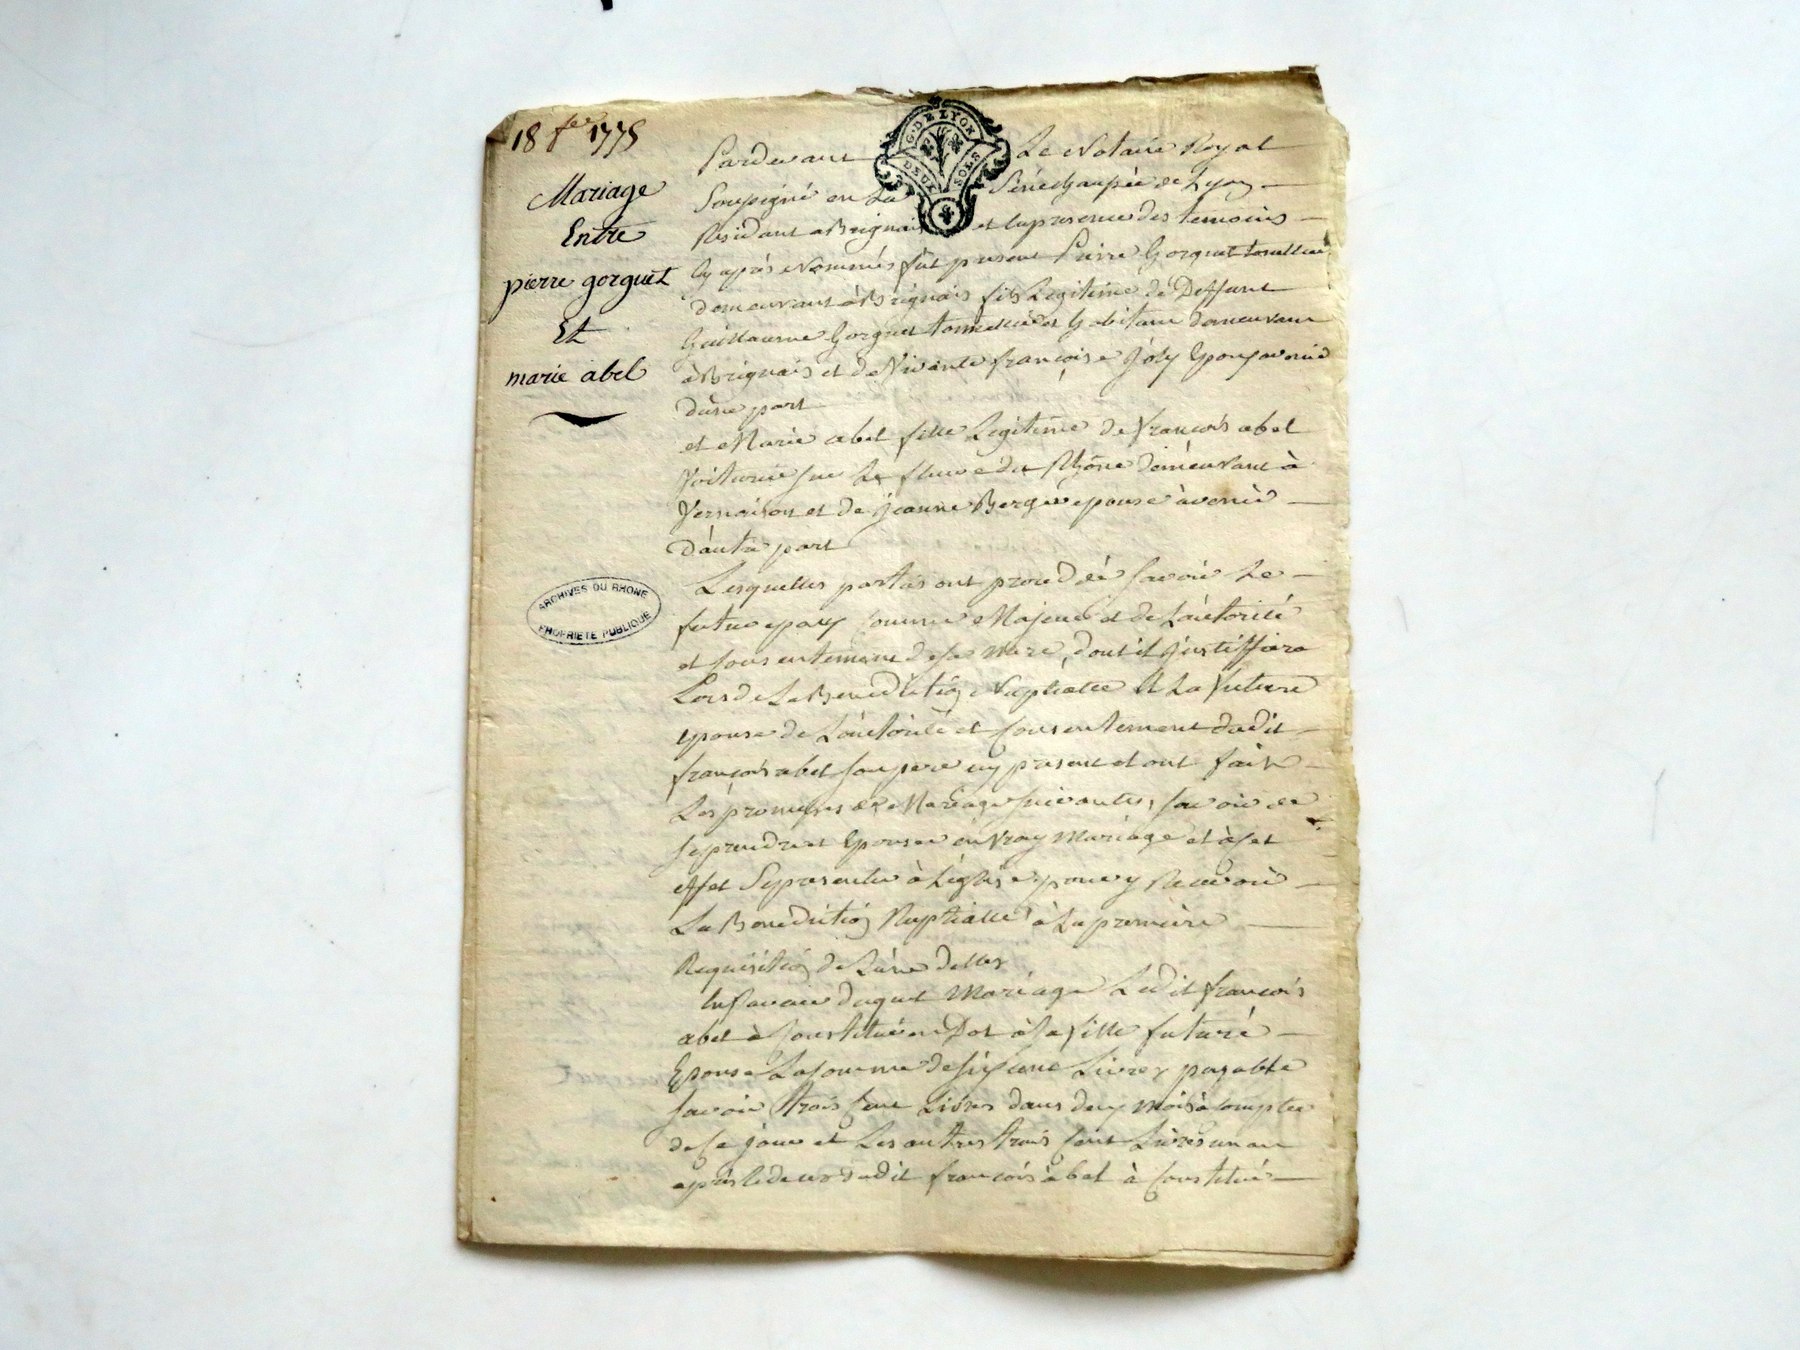 18 fer 1775
Mariage
Entre
pierre gorguet
Et
marie abel
G. DE LYON
DEUX SOLS
ARCHIVES DU RHONE
PROPRIETE PUBLIQUE
Pardevant Le Notaire Royal
Soussigné en La Sénéchaussée de Lyon
Résidant a Brignais et en la presence des temoins
Cy après Nommés fut present Pierre Gorguet tonellier
demeurant à Brignais fils Legitime de Deffunt
Guillaume Gorguet tonnellier et habitant demeurant
à Brignais et de Vivante françoise Joly Epoux avenir
d'une part
et Marie abel fille Legitime de François abel
Voiturier sur Le fleuve du Rhône demeurant à
Vernaison et de jeanne Berger epouse àvenir
d'autre part
Lesquelles parties ont procedé savoir Le
futur epoux comme Majeur et de L'autorité
et consentement de sa mere, dont il justiffiera
Lors de La Benediction Nuptialle et La future
epouse de L'autorité et consentement dudit
françois abel son pere cy present et ont fait
Les promesses de Mariage suivantes, savoir de
se prendre et Epouser en vray mariage et à cet
effet se presenter à L'église pour y Recevoir
La Benediction Nuptialle à La premiere
Requisition de L'une d'elles
En faveur duquel Mariage Ledit françois
abel à Constitué en Dot à sa fille future
Epouse La somme de six cent Livres payable
savoir trois cent Livres dans deux mois à compter
de ce jour et Les autres trois cent Livres un an
après le deces dudit françois abel à Constitué